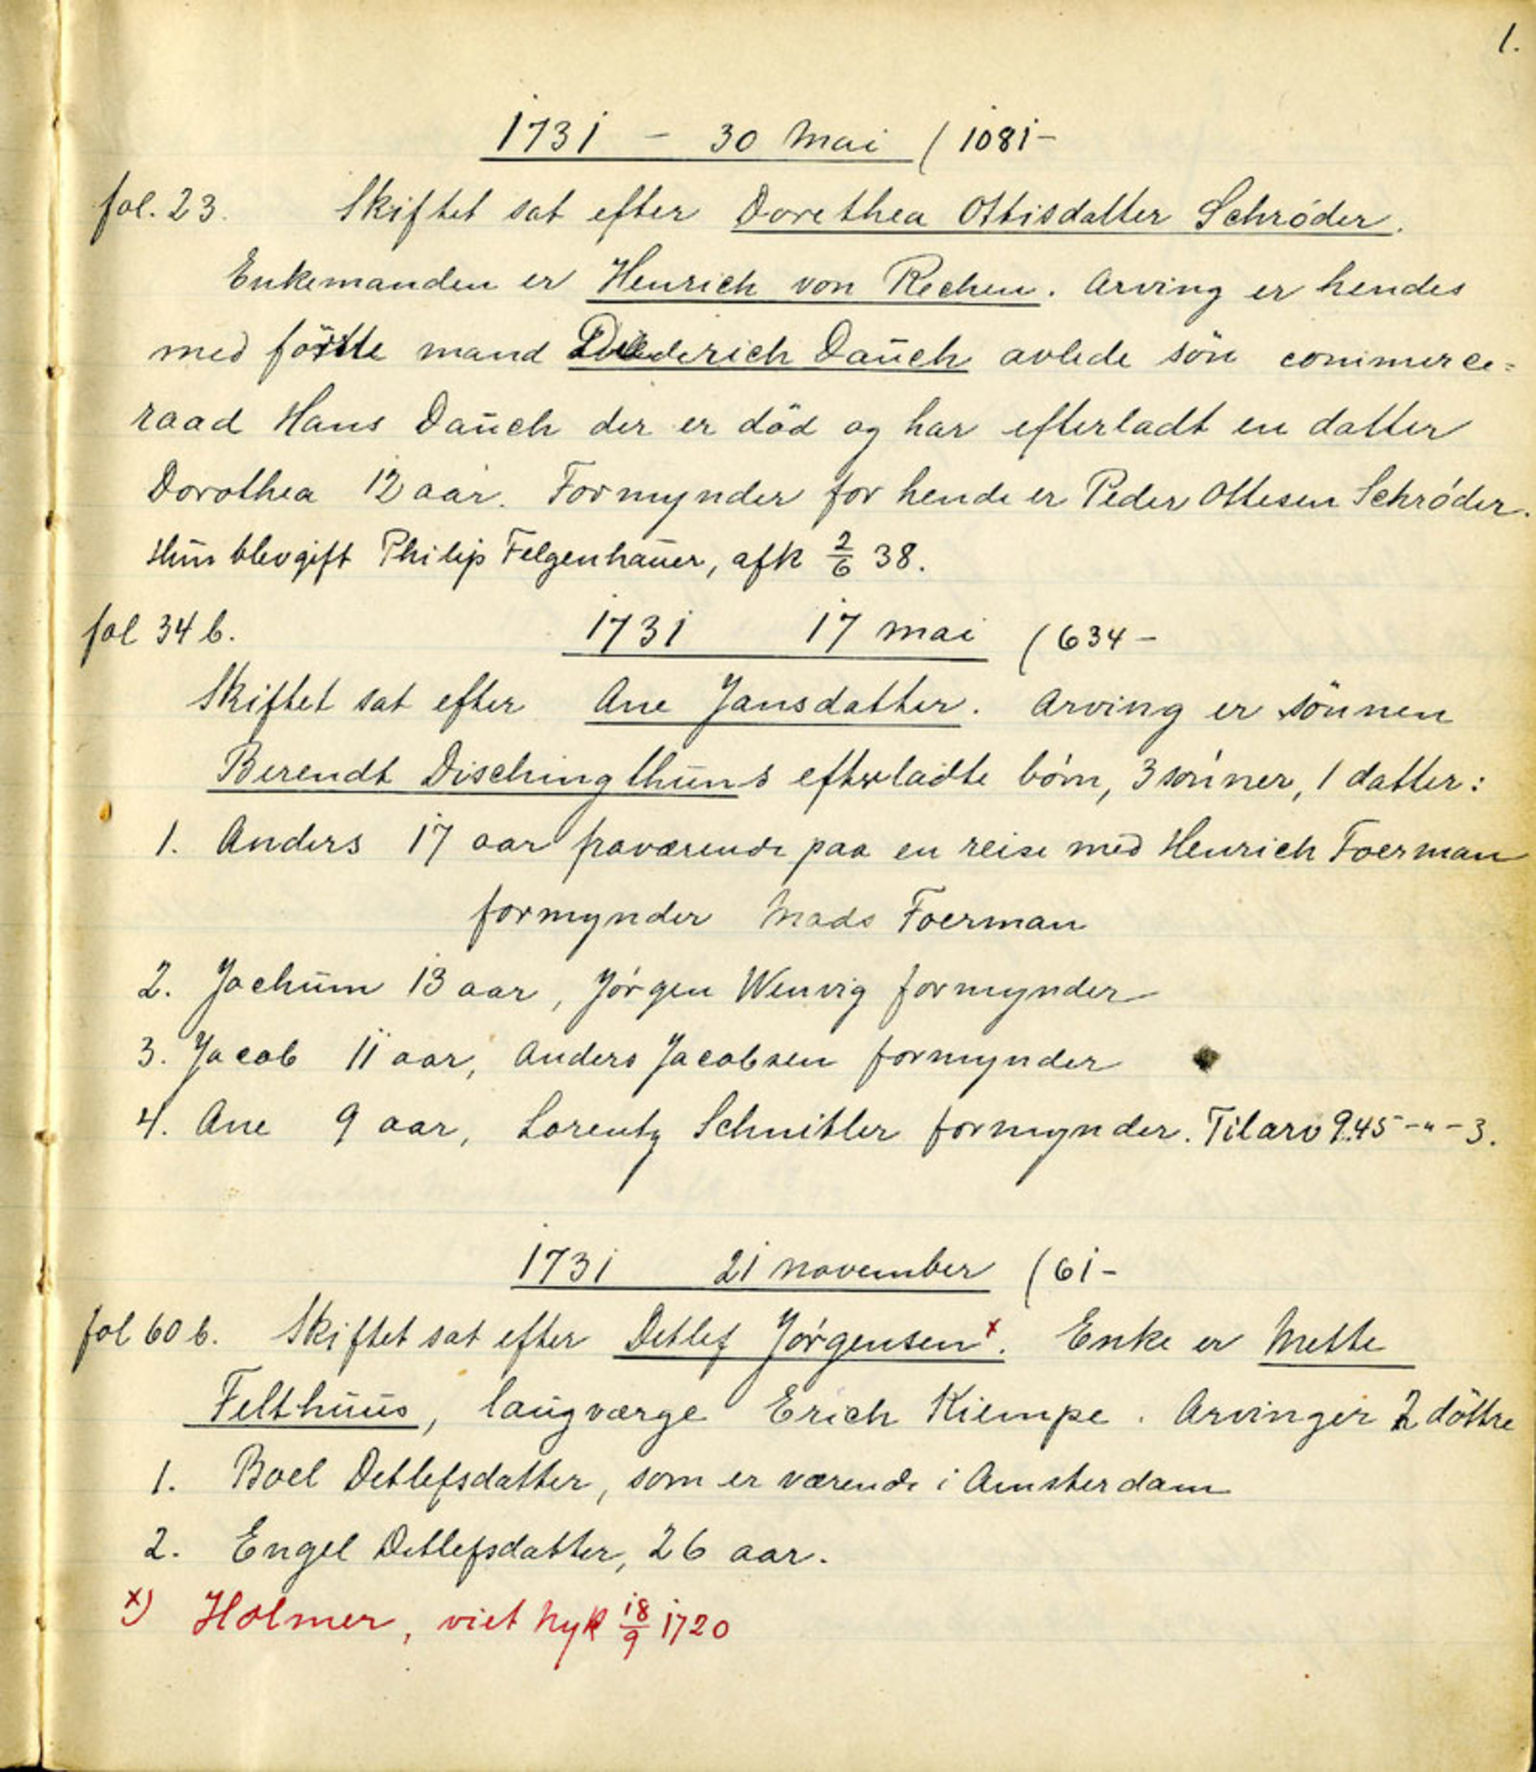 1.
1731 – 30 Mai / 1081–
fol. 23. Skiftet sat efter Dorethea Ottisdatter Schrøder.
Enkemanden er Henrich von Rechen. Arving er hendes
med förste mand Diederich Dauch avlede sön commerce=
raad Hans Dauch der er död og har efterladt en datter
Dorothea 12 aar. Formynder for hende er Peder Ottesen Schrøder.
Hun blev gift Philip Felgenhauer, afk 2/6 38.
fol 34 b. 1731 17 mai / 634 –
Skiftet sat efter Ane Jansdatter. Arving er sönnen
Berendt Dischingthuns efterladte börn, 3 sönner, 1 datter:
1. Anders 17 aar fraværende paa en reise med Henrich Foerman
formynder Mads Foerman
2. Jochum 13 aar, Jörgen Wenvig formynder
3. Jacob 11 aar, Anders Jacobsen formynder
4. Ane 9 aar, Lorentz Schnitler formynder. Til arv 9.45 -"- 3.
1731 21 november / 61 –
fol 60 b. Skiftet sat efter Detlef Jörgensen x. Enke er Mette
Felthuus, laugværge Erich Kiempe. Arvinger 2 döttre
1. Boel Detlefsdatter, som er værende i Amsterdam
2. Engel Detlefsdatter, 26 aar.
x) Holmer, viet Nyk 18/9 1720